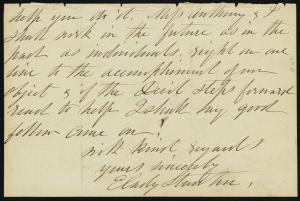 help you do it. Miss Anthony & I
shall work in the future as in the
past as individuals, right in our
line to the accomplishment of our
object & if the Devil steps forward
ready to help I shall say good
fellow come on!
with kind regards
yours sincerely
E Cady Stanton,